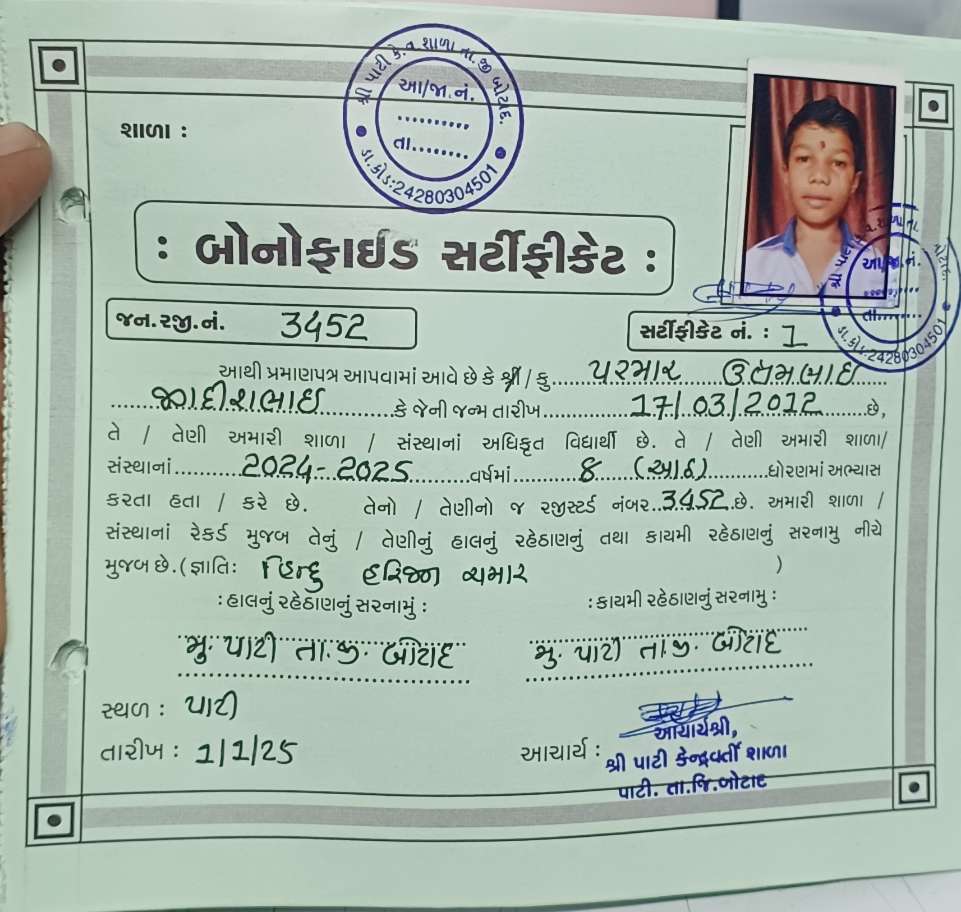 શ્રી પાટી કે.વ શાળા તા.જી બોટાદ.
આ/જા.નં.
તા.........
ડા.કોડ:24280304501
શાળા :
: બોનોફાઈડ સર્ટીફીકેટ :
જન.રજી.નં. 3452
સર્ટીફીકેટ નં. : 1
આથી પ્રમાણપત્ર આપવામાં આવે છે કે શ્રી / કુ. પરમાર ઉત્તમભાઇ
જગદીશભાઇ કે જેની જન્મ તારીખ 17/03/2012 છે,
તે / તેણી અમારી શાળા / સંસ્થાનાં અધિકૃત વિદ્યાર્થી છે. તે / તેણી અમારી શાળા/
સંસ્થાનાં 2024-2025 વર્ષમાં 8 (આઠ) ધોરણમાં અભ્યાસ
કરતા હતા / કરે છે. તેનો / તેણીનો જ રજીસ્ટર્ડ નંબર 3452 છે. અમારી શાળા /
સંસ્થાનાં રેકર્ડ મુજબ તેનું / તેણીનું હાલનું રહેઠાણનું તથા કાયમી રહેઠાણનું સરનામુ નીચે
મુજબ છે. (જ્ઞાતિઃ હિન્દુ હરિજન ચમાર )
: હાલનું રહેઠાણનું સરનામું :
: કાયમી રહેઠાણનું સરનામુ :
મુ. પાટી તા.જી. બોટાદ
મુ. પાટી તા.જી. બોટાદ
સ્થળ : પાટી
તારીખ : 1/1/25
આચાર્ય :
આચાર્યશ્રી,
શ્રી પાટી કેન્દ્રવર્તી શાળા
પાટી. તા.જિ.બોટાદ
આ/જા.નં.
તા.........
ડા.કોડ:24280304501